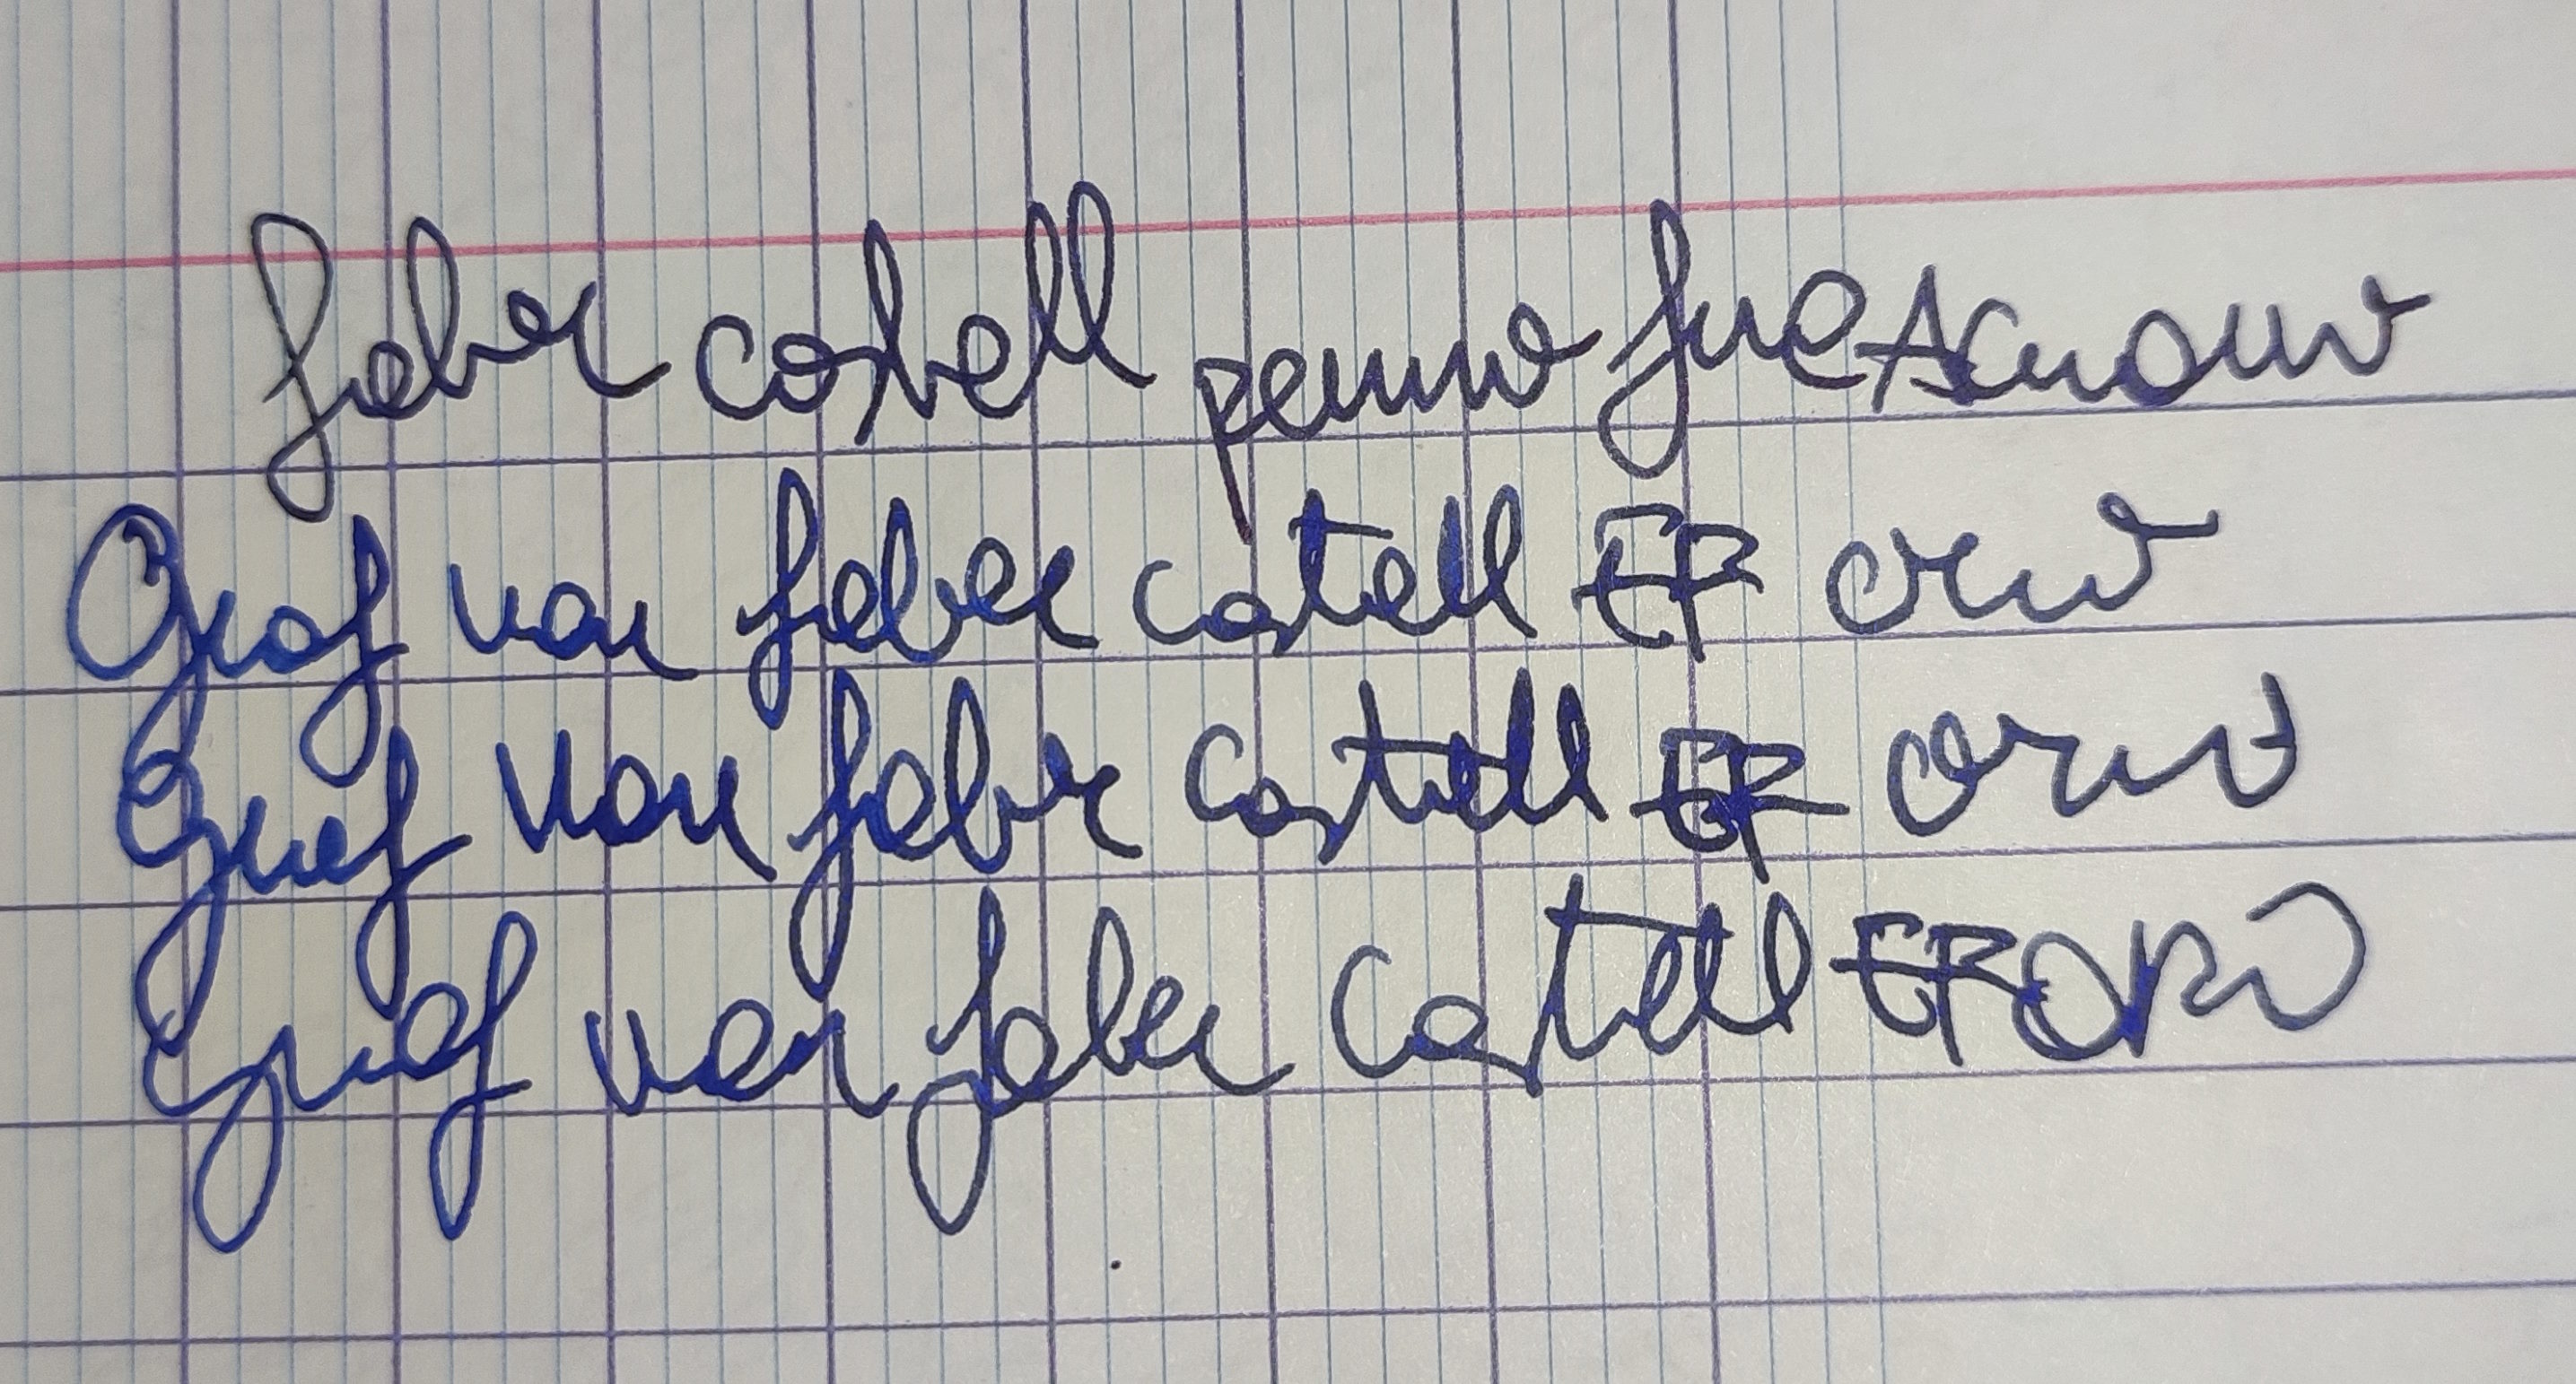 faber castell penna fine Acciaio
Graf von faber castell EF oro
Graf von faber castell EF oro
Graf von faber castell EF ORO